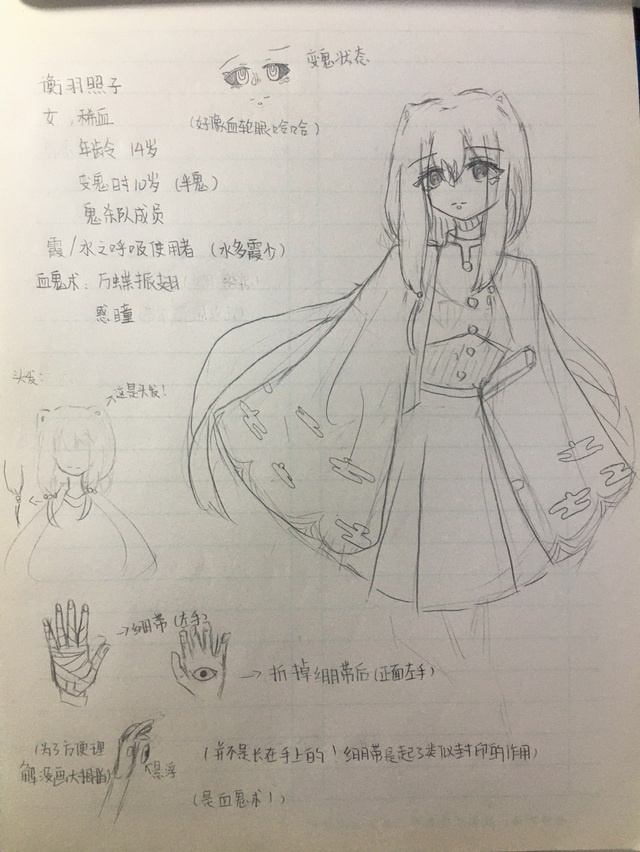 衡羽照子
女，稀血
年龄 14岁
变鬼时10岁（半鬼）
鬼杀队成员
霞/水之呼吸使用者（水多霞少）
血鬼术：万蝶振翅
惑瞳
变鬼状态
（好像血轮眼哈哈）
头发：
这是头发！
绷带（左手）
拆掉绷带后（正面左手）
（为了方便理
解漫画大
悬浮
（并不是长在手上的！绷带是起了类似封印的作用）
（是血鬼术！）